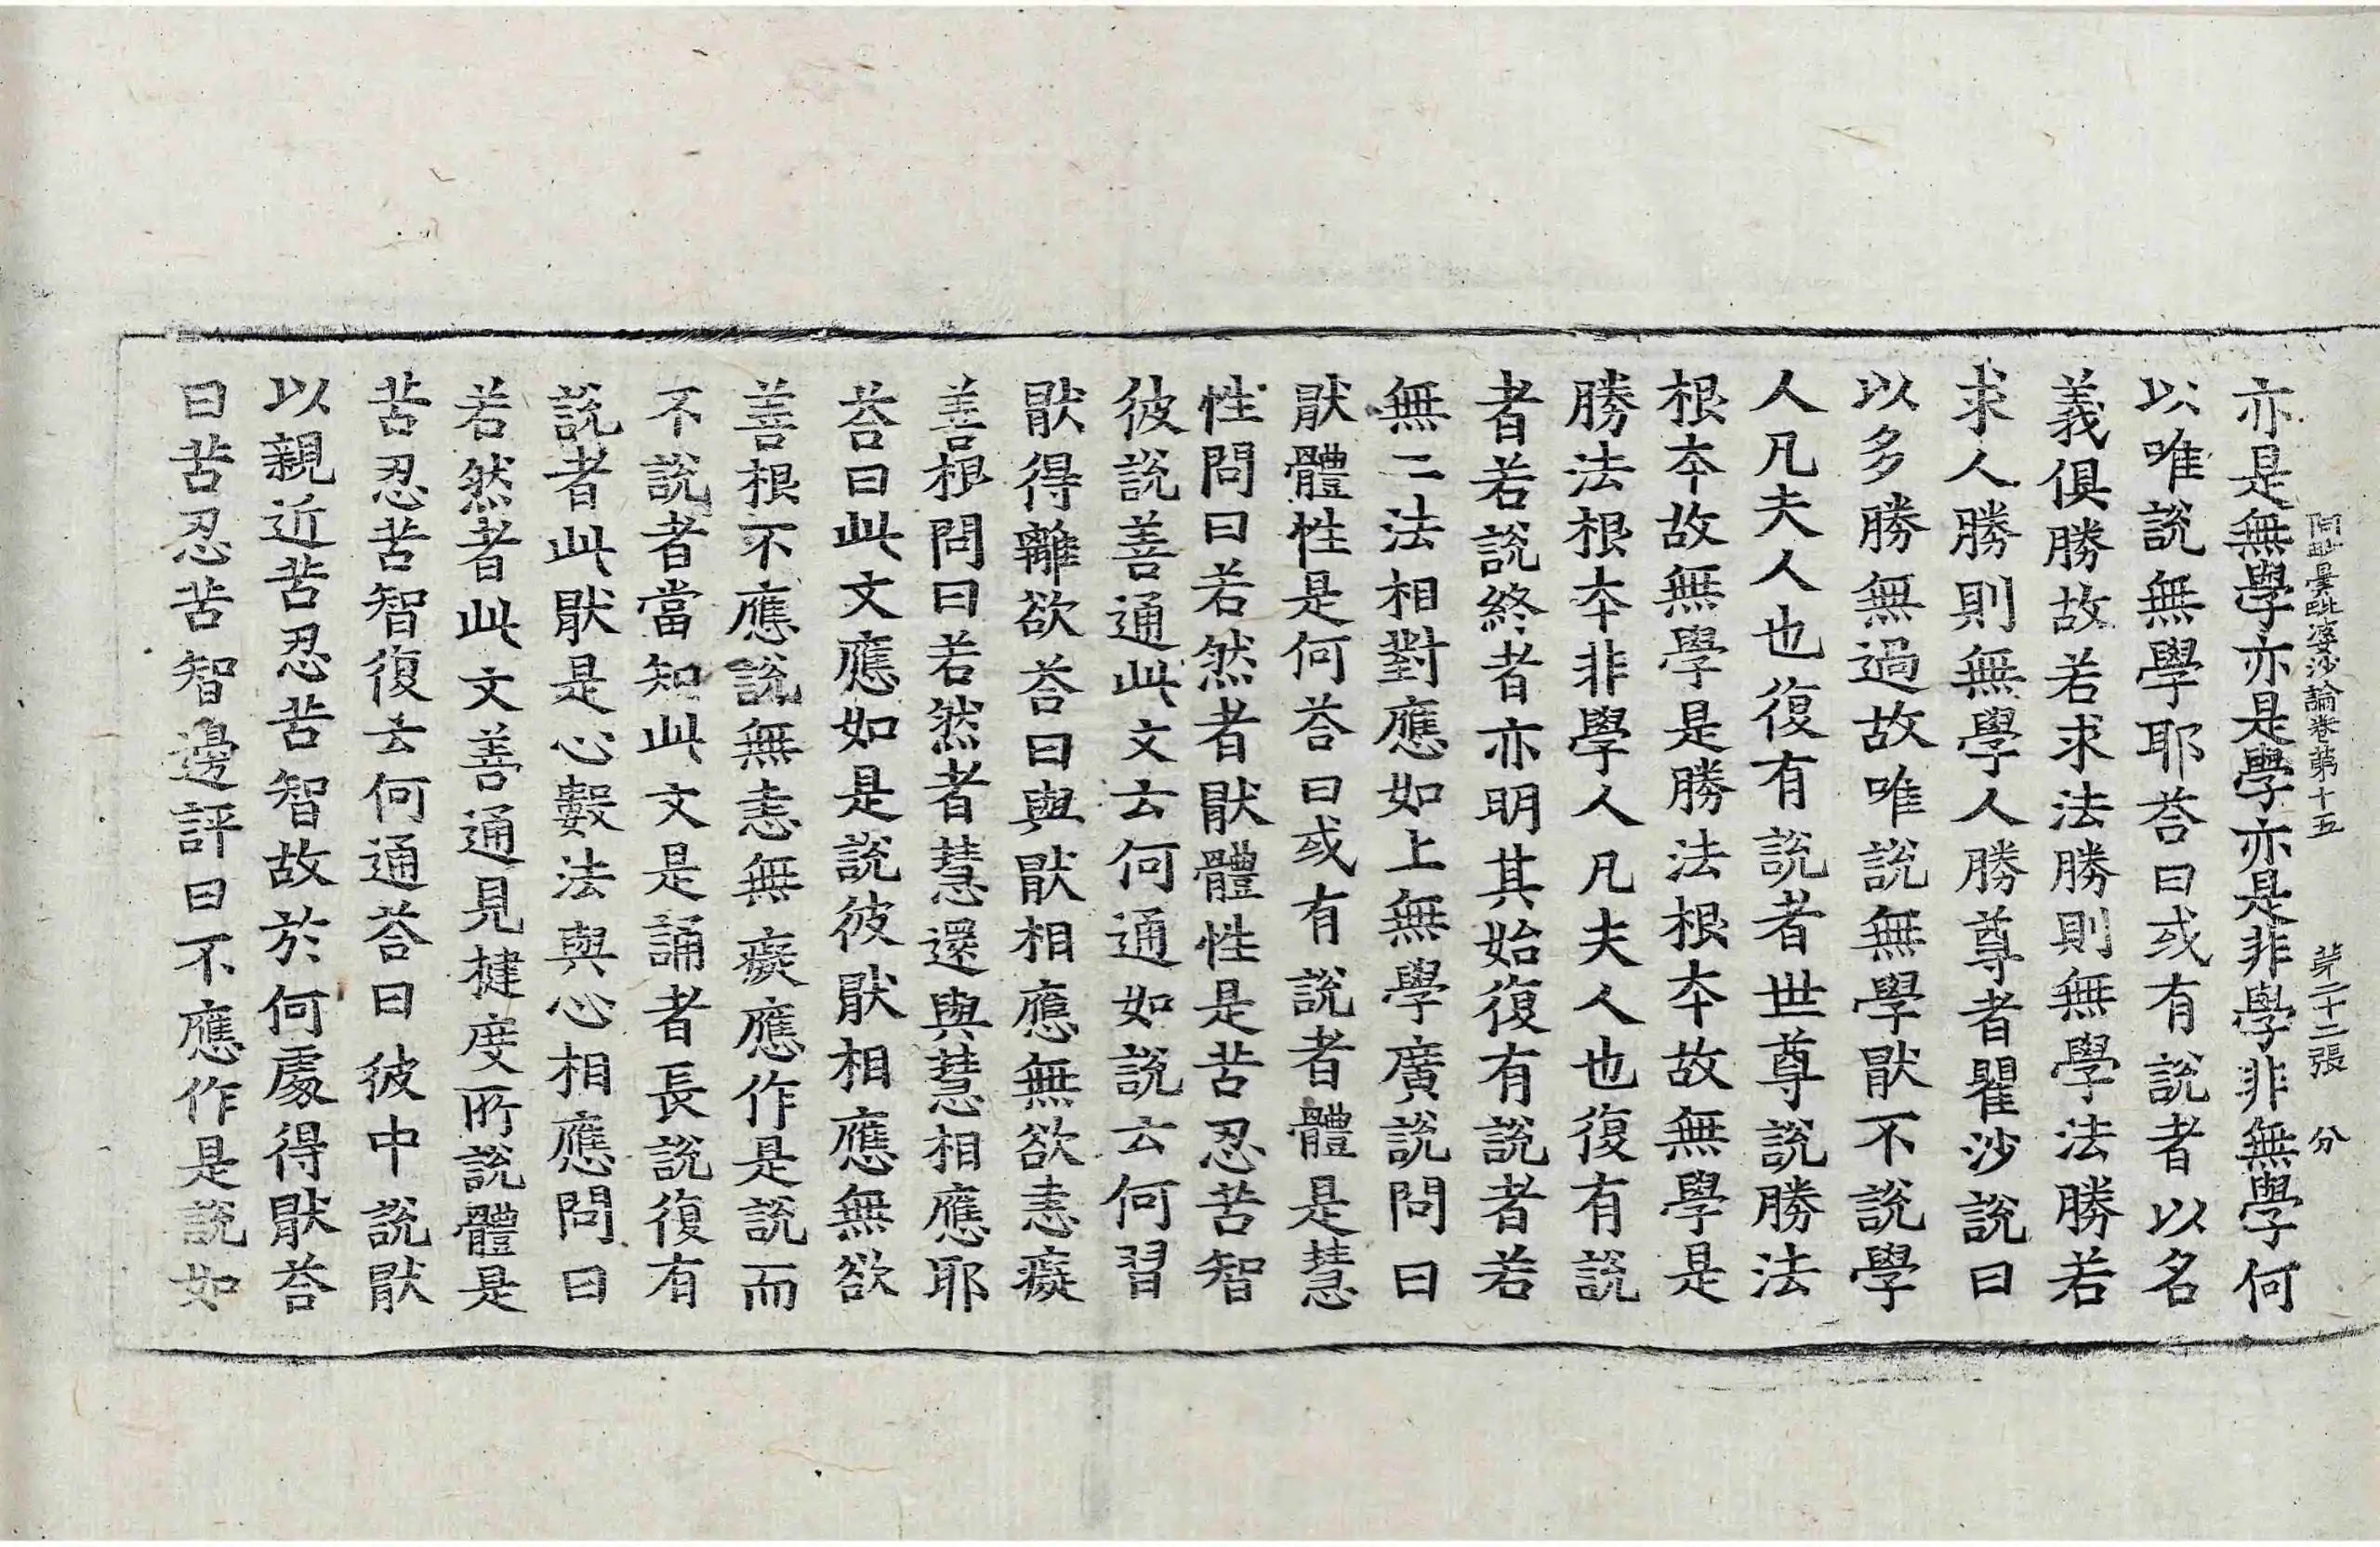 阿毗曇毗婆沙論卷第十五 第二十二張 分
亦是無學亦是學亦是非學非無學何
以唯說無學耶荅曰或有說者以名
義俱勝故若求法勝則無學法勝若
求人勝則無學人勝尊者瞿沙說曰
以多勝無過故唯說無學猒不說學
人凡夫人也復有說者世尊說勝法
根本故無學是勝法根本故無學是
勝法根本非學人凡夫人也復有說
者若說終者亦明其始復有說者若
無二法相對應如上無學廣說問曰
猒體性是何荅曰或有說者體是慧
性問曰若然者猒體性是苦忍苦智
彼說善通此文云何通如說云何習
猒得離欲荅曰與猒相應無欲恚癡
善根問曰若然者慧還與慧相應耶
荅曰此文應如是說彼猒相應無欲
善根不應說無恚無癡應作是說而
不說者當知此文是誦者長說復有
說者此猒是心數法與心相應問曰
若然者此文善通見揵度所說體是
苦忍苦智復云何通荅曰彼中說猒
以親近苦忍苦智故於何處得猒荅
曰苦忍苦智邊評曰不應作是說如